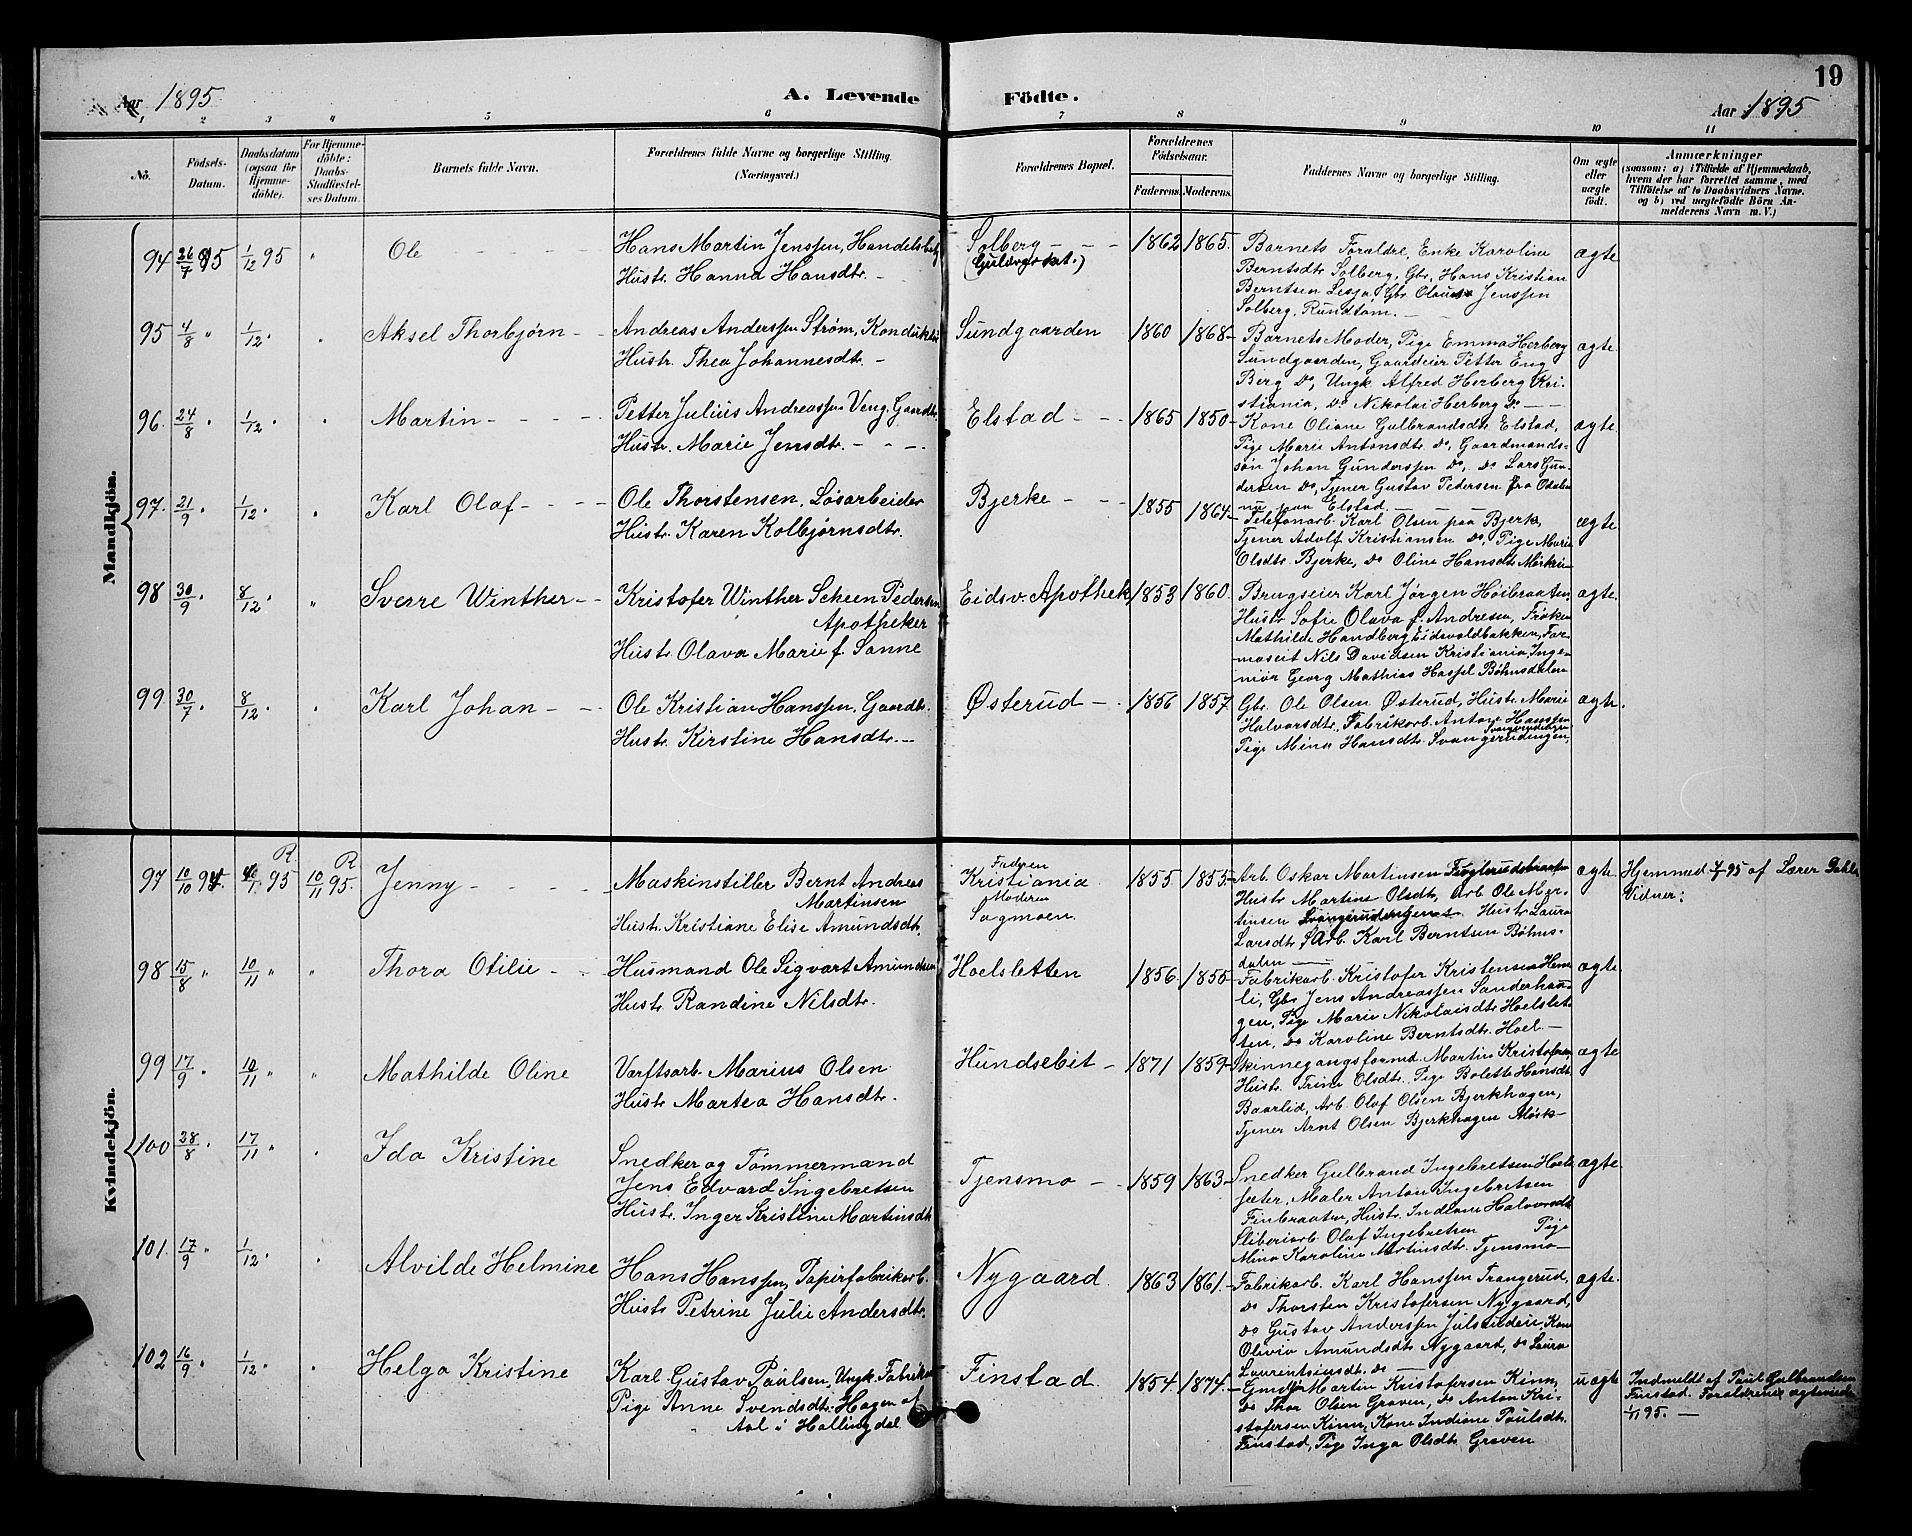 19
Aar 1895
A. Levende
Födte.
Aar 1895
1 2 3 4 5 6 7 8 9 10 11
No.
Födsels-
Datum.
Daabsdatum
(ogsaa for
Hjemme-
döbte).
For Hjemme-
döbte:
Daabs-
Stadfæstel-
ses Datum.
Barnets fulde Navn.
Forældrenes fulde Navne og borgerlige Stilling.
(Næringsvei.)
Forældrenes Bopæl.
Forældrenes
Födselsaar.
Faderens. Moderens.
Faddernes Navne og borgerlige Stilling.
Om ægte
eller
uægte
födt.
Anmærkninger
(saasom: a) i Tilfælde af Hjemmedaab,
hvem der har forrettet samme, med
Tilföielse af to Daabsvidners Navne.
og b) ved uægtefödte Börn An-
melderens Navn m. V.)
Mandkjön.
94 26/7 95 1/12 95 " Ole
Hans Martin Jenssen, Handelsbetj
Hustr. Hanna Hansdtr. -
Solberg - - -
1862 1865.
Barnets Forældre, Enke Karoline
Berntsdtr Solberg, Gbr. Hans Kristian
Berntsen Lesja, Gbr Olaus Jenssen
Solberg, Rundtom. -
ægte
95 4/8 " 1/12 " " Aksel Thorbjørn - -
Andreas Anderssen Strøm, Konduktør
Hustr. Thea Johannesdtr. -
Sundgaarden
1860 1868.
Barnets Moder, Pige Emma Herberg
Sundgaarden, Gaardeier Petter Eng
Berg Do, Ungk. Alfred Herberg Kri-
stiania, Do Nikolai Herberg Do - -
ægte.
96. 24/8 " 1/12 " " Martin - - -
Petter Julius Andreassen Veng, Gaardbr.
Hustr. Marie Jensdtr. - - -
Elstad - -
1865 1850.
Kone Oliane Gulbrandsdtr Elstad,
Pige Marie Antonsdtr Do, Gaardmands-
søn Johan Gunderssen Do, Do Lars Gun-
dersen Do, Tjener Gustav Pedersen fra Odalen
nu paa Elstad. - -
ægte.
97. 21/9 " 1/12 " " Karl Olaf - - -
Ole Thorstensen, Løsarbeider
Hustr. Karen Kolbjørnsdtr.
Bjerke - -
1855 1864.
Telefonarb. Karl Olsen paa Bjerke,
Tjener Adolf Kristiansen Do, Pige Marie
Olsdtr. Bjerke, Do Oline Hansdtr
ægte
98 30/9 " 8/12 " " Sverre Winther - -
Kristofer Winther Scheen Pedersen
Apotheker
Hustr Olava Marie f. Sanne
Eidsv. Apothek
1853 1860.
Brugseier Karl Jørgen Høibraaten,
Hustr. Sofie Olava f. Andresen, Frøken
Mathilde Handberg Eidsvoldbakken, Far-
maseit Nils Davidsen Kristiania, Inge-
niør Georg Mathias Hassel Bøhnsdalen
ægte.
99. 30/7 " 8/12 " " Karl Johan - -
Ole Kristian Hanssen, Gaardbr.
Hustr. Kirstine Hansdtr. -
Østerud - -
1856 1857
Gbr. Ole Olsen Østerud, Hustr. Marie
Halvorsdtr., Fabrikarb. Anton Hanssen
Svangerudengen
Pige Mina Hansdtr. Svangerudengen,
ægte.
Kvindekjön.
R. R
97 10/10 94. 1/1 95 10/11 95. Jenny - - - -
Maskinstiller Bernt Andreas
Martinsen
Hustr. Kristiane Elise Amundsdtr.
Faderen
Kristiania
Moderen
Sagmoen.
1855 1855.
Arb. Oskar Martinsen
Hustr Martine Olsdtr, Arb Ole Mar-
tinsen Hustr Laura
Larsdtr, Arb. Karl Berntsen Bøhns-
dalen -
ægte.
Hjemmed. 95 af Lærer Dahl
Vidner:
98 15/8 " 10/11 " " Thora Otilie - -
Husmand Ole Sigvart Amundsen
Hustr Randine Nilsdtr.
Hoelsletten
1856. 1855
Fabrikarb. Kristofer Kristensen Heme
li, Gbr Jens Andreassen Sanderhau-
gen, Pige Marie Nikolaisdtr Hoelslet-
ten, Do Karoline Berntsdtr. Hoel. -
ægte.
99 17/9 " 10/11 " " Mathilde Oline
Værftsarb. Marius Olsen
Hustr. Martea Hansdtr.
Hundsebit -
1871 1859
Skinnegangsformd. Martin Kristofersen
Hustr. Trine Olsdtr. Pige Bolette Hansdtr
Baarlid, Arb. Olaf Olsen Bjerkhagen,
Tjener Arnt Olsen Bjerkhagen
ægte
100 28/8 " 17/11 " " Ida Kristine
Snedker og Tømmermand
Jens Edvard Ingebretsen
Hustr. Inger Kristine Martinsdtr
Tjensmo -
1859 1863.
Snedker Gulbrand Ingebretsen Hoel-
sæter, Maler Anton Ingebretsen
Finbraaten, Hustr. Indiane Halvorsdtr
Sliberiarb. Olaf Ingebretsen Pige
Mina Karoline Martinsdtr. Tjensmo -
ægte.
101. 17/9 " 1/12 " " Alvilde Helmine
Hans Hanssen, Papirfabrikarb.
Hustr Petrine Julie Andersdtr.
Nygaard
1863 1861.
Fabrikarb. Karl Hanssen Trangerud,
Do Thorsten Kristofersen Nygaard,
Do Gustav Anderssen Julseideie, Kone
Olivia Amundsdtr. Nygaard, Do Laura
Laurentsiusdtr. Do -
ægte.
102 16/9 " 1/12 " " Helga Kristine
Karl Gustav Paulsen, Ungk. Fabrikarb
Pige Anne Svendsdtr. Hagen af
Aal i Hallingdal
Finstad.
1854. 1874.
Gmd. Martin Kristofersen Kinn,
Do Thor Olsen Graven, Do Anton Kri-
stofersen Kinn, Kone Indiane Paulsdtr.
Finstad, Pige Inga Olsdtr Graven
uægte
Indmeldt af Paul Gulbrandsen
Finstad. Forældrene ægteviede
1/11 95. -